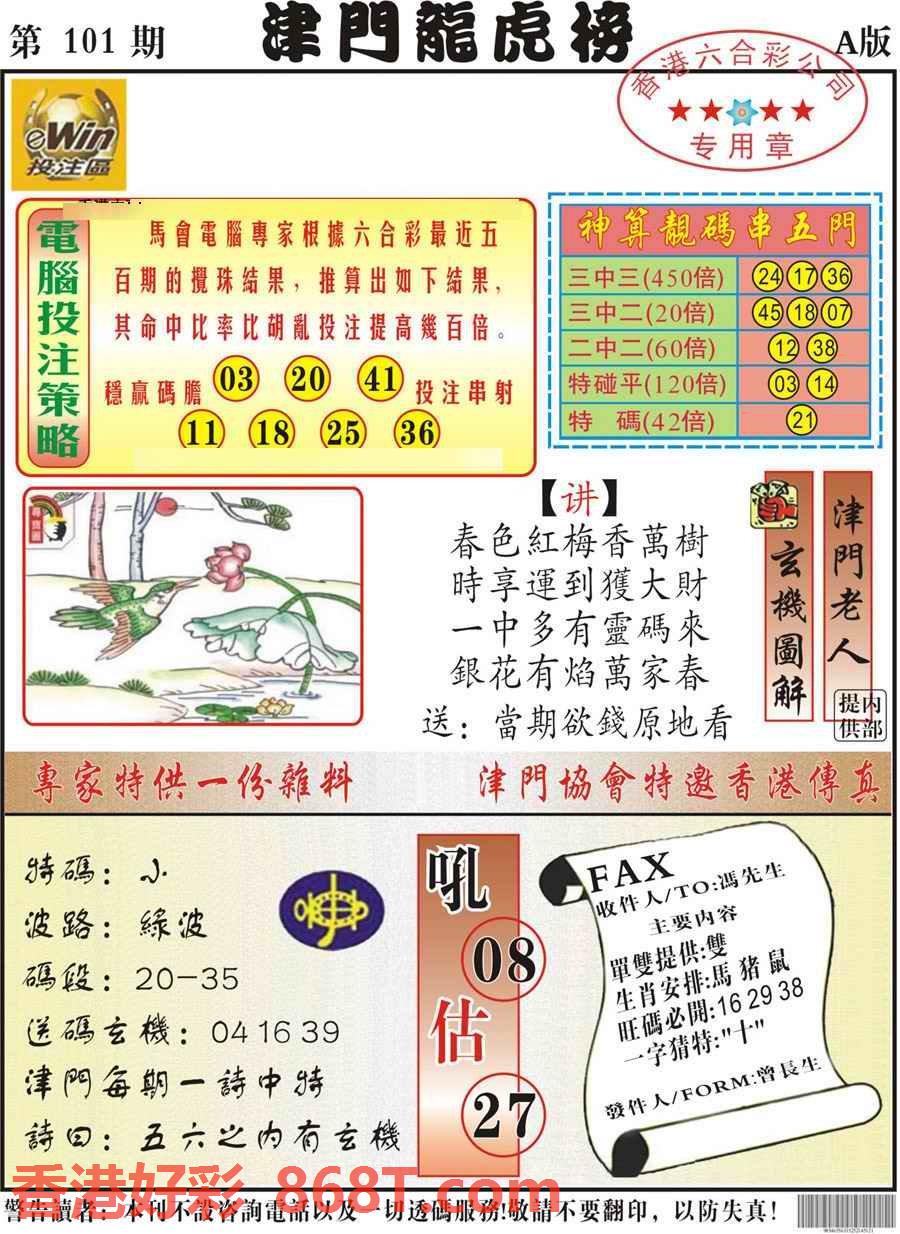 第 101 期
津門龍虎榜
A版
香港六合彩公司
★★★★
专用章
eWin
投注區
電腦投注策略
馬會電腦專家根據六合彩最近五
百期的攪珠結果，推算出如下結果，
其命中比率比胡亂投注提高幾百倍。
穩贏碼膽 03 20 41 投注串射
11 18 25 36
神算靚碼串五門
三中三(450倍) 24 17 36
三中二(20倍) 45 18 07
二中二(60倍) 12 38
特碰平(120倍) 03 14
特 碼(42倍) 21
尋寶圖
【讲】
春色紅梅香萬樹
時享運到獲大財
一中多有靈碼來
銀花有焰萬家春
送：當期欲錢原地看
玄機圖解
津門老人
内部提供
專家特供一份雜料
津門協會特邀香港傳真
特碼：小
波路：綠波
碼段：20-35
送碼玄機：04 16 39
津門每期一詩中特
詩曰：五六之内有玄機
吼
08
估
27
FAX
收件人/TO:馮先生
主要内容
單雙提供:雙
生肖安排:馬 猪 鼠
旺碼必開:16 29 38
一字猜特:"十"
發件人/FORM:曾長生
香港好彩 868T.com
警告讀者：本刊不設咨詢電話以及一切透碼服務!敬請不要翻印，以防失真!